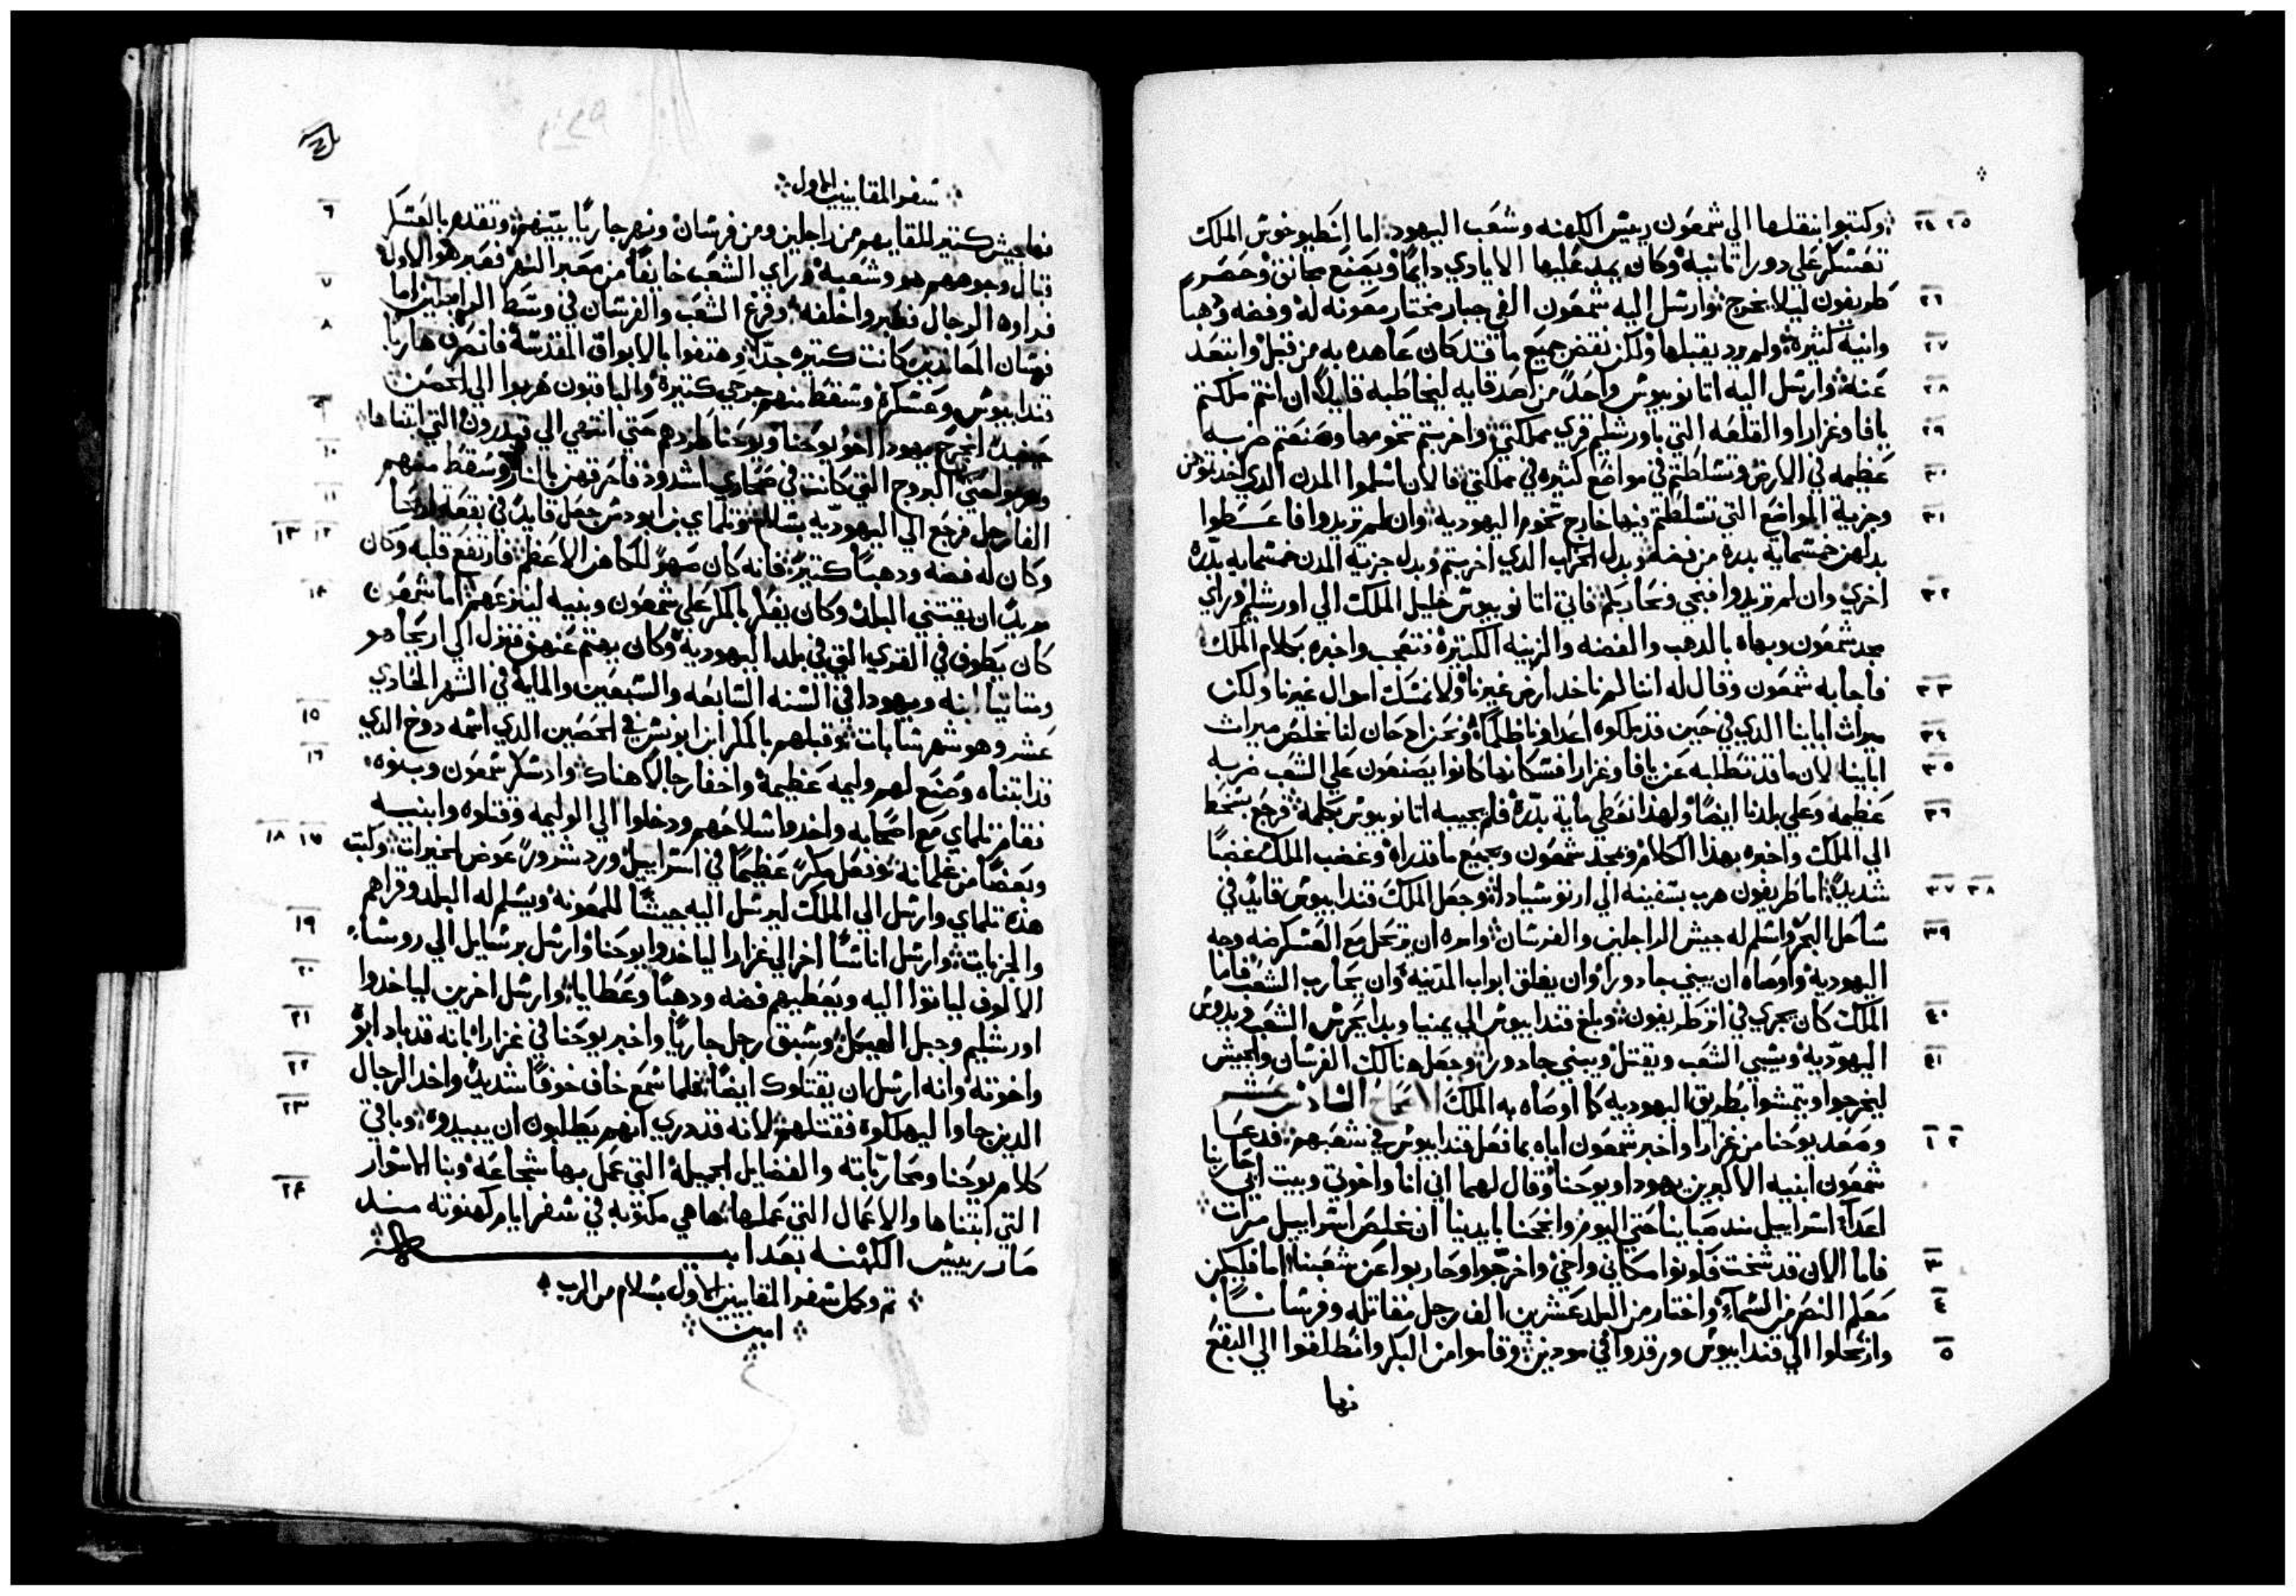 ٢٤ ٢٥ وكتبوا نقلها الي شمعون رييس الكهنه وشعب اليهود: اما انطيوخوس الملك
تعسكر علي دورا تانية وكان يمد عليها الايادي دايمًا ويصنع مجانق وحصر
٢٦ طريفون ليلا يخرج وارسل اليه شمعون الفي جبار مختار معونه له وفضه ودهبًا
٢٧ وانية كثيرة ولم يرد يقبلها ولكن نقض جميع ما قد كان عاهده به من قبل وابتعد
٢٨ عنه وارسل اليه اتانوبيوس واحدًا من اصدقايه ليخاطبه قايلًا ان انتم ملكتم
٢٩ يافا وغزارا والقلعه التي باورشليم قري مملكتي واخربتم تخومها وصنعتم ضربه
٣٠ عظيمه في الارض وتسلطتم في مواضع كثيره في مملكتي فالان اسلموا المدن الذي اخدتوهن
٣١ وجزية المواضع التي تسلطتم فيها خارج تخوم اليهودية وان لم تريدوا فاعطوا
بدلهن خمسمايه بدره من فضه وبدل الخراب الدي اخربتم وبدل جزية المدن خمسمايه بدره
٣٢ اخري وان لم تريدوا فنجي ونحاربكم فاتي اتانوبيوس خليل الملك الي اورشليم وراي
مجد شمعون وبهاه بالدهب والفضه والزينه الكتيرة فتعجب واخبره بكلام الملك
٣٣ فاجابه شمعون وقال له اننا لم ناخد ارض غيرنا ولا نمسك اموال غيرنا ولكن
٣٤ ميراث ابايِنا الدي في حين قد ملكوه اعداونا ظلمًا ونحن اد حان لنا نخلص ميراث
٣٥ اباينا لان ما قد تطلبه عن يافا وغزارا فسكانها كانوا يصنعون علي الشعب ضربه
٣٦ عظيمه وعلي بلدنا ايضًا ولهدا نعطي ماية بدّرة فلم يجيبه اتانوبيوس بكلمة فرجع بسخط
الي الملك واخبره بهدا الكلام وبمجد شمعون وبجميع ما قد راه وغضب الملك غضبًا
٣٧ ٣٨ شديدًا اما طريفون هرب بسفينه الي ارتوسيادا وجعل الملك قندابيوس قايد في
٣٩ ساحل البحر واسلم له جيش الراجلين والفرسان وامره ان يرتحل مع العسكر ضد وجه
اليهودية واوصاه ان يبني جادورا وان يغلق ابواب المدينه وان يحارب الشعب فاما
٤٠ الملك كان يجري في اثر طريفون وبلغ قندابيوس الي يمنيا وبدا يحرش الشعب ويدوس
٤١ اليهوديّة ويسبي الشعب ويقتل ويبني جادورا وجعل هنالك الفرسان والجيش
ليخرجوا ويتمشوا بطريق اليهودية كما اوصاه به الملك الاصحاح السادس عشر
١ ٢ وصعد يوحنا من غزارا واخبر شمعون اباه بما فعل قندابيوس في شعبهم فدعا
شمعون ابنيه الاكبرين يهودا ويوحنا وقال لهما اني انا واخوتي وبيت ابي حاربنا
اعدا اسراييل مند صباينا حتي اليوم وانجحنا بايدينا ان نخلص اسراييل مرات
٣ فاما الان قد شخت فكونوا مكاني واخي واخرجوا وحاربوا عن شعبنا اما فليكن
٤ معكم النصر من السماء واختار من البلد عشرين الف رجل مقاتله وفرسانًا
٥ وارتحلوا الي قندابيوس ورقدوا في مودين وقاموا من البكر وانطلقوا الي البقع
فها
سفر المقابيين الاول
٦ فها جيش كتير للمقابهم من راجلين ومن فرسان ونهر جاريًا بينهم وتقدم بالعسكر
قبال وجوههم هو وشعبه وراي الشعب خايفًا من معبر النهر فعبر هو الاول
٧ فراوه الرجال فعبروا خلفه وفرغ الشعب والفرسان في وسط الراجلين اما
٨ فرسان المعاندين كانت كتيره جدًا وهتفوا بالابواق المقدسة فانصرف هاربًا
قندابيوس وعسكره وسقط منهم جرحي كتيرة والباقون هربوا الي الحصن
٩ حينيد انجرح يهودا اخو يوحنا ويوحنا طردهم حتي انتهي الي قيدرون التي ابتناها
١٠ وهربوا حتي البروج التي كانت في صحاري اشدود فاحرقهن بالنار وسقط منهم
١١ الفا رجل فرجع الي اليهوديّه بسلام وتلماي بن ابودس جعل قايدًا في بقعة اريحا
١٢ ١٣ وكان له فضه ودهبًا كتيرًا فانه كان صهر للكاهن الاعظم فارتفع قلبه وكان
يريد ان يقتني البلد وكان يفكر بالمكر علي شمعون وبنيه لينزعهم
١٤ اما شمعون كان يطوف في القري التي في بلد اليهودية وكان يهتم عنهن فنزل الي اريحا هو
ومتاتيا ابنه ويهودا في السنه السابعه والسبعين والمايه في الشهر الحادي
١٥ عشر وهو شهر شابات وقبلهم بالمكر ابن ابوبس في الحصين الدي اسمه دوخ الدي
١٦ قد ابتناه وصنع لهم وليمه عظيمة واخفا رجالًا هناك واد سكر شمعون وبنوه
فقام تلماي مع اصحابه واخدوا سلاحهم ودخلوا الي الوليمه وقتلوه وابنيه
١٧ ١٨ وبعضًا من غلمانه وفعل مكرًا عظيمًا في اسراييل ورد شرورًا عوض الخيرات وكتب
هده تلماي وارسل الي الملك ليرسل اليه جيشًا للمعونه ويسلم له البلد وقراهم
١٩ والجزيات وارسل اناسًا اخر الي غزارا لياخدوا يوحنا وارسل برسايل الي روساء
٢٠ الالوف لياتوا اليه ويعطيهم فضه ودهبًا وعطايا وارسل اخرين لياخدوا
٢١ اورشليم وجبل الهيكل وسبق رجل جاريًا واخبر يوحنا في غزارا بانه قد باد ابوه
٢٢ واخوته وانه ارسل ان يقتلوك ايضًا فلما سمع خاف خوفًا شديدًا واخد الرجال
٢٣ الدين جاوا ليهلكوه فقتلهم لانه قد دري انهم يطلبون ان يبيدوه وباقي
كلام يوحنا ومحارباته والفضايل الجميلة التي عمل بها شجاعة وبنا الاسوار
٢٤ التي ابتناها والاعمال التي عملها ها هي مكتوبه في سفر ايام كهنوته مند
صار رييس الكهنه بعد ابيه
تم وكمل سفر المقابيين الاول بسلام من الرب
امين